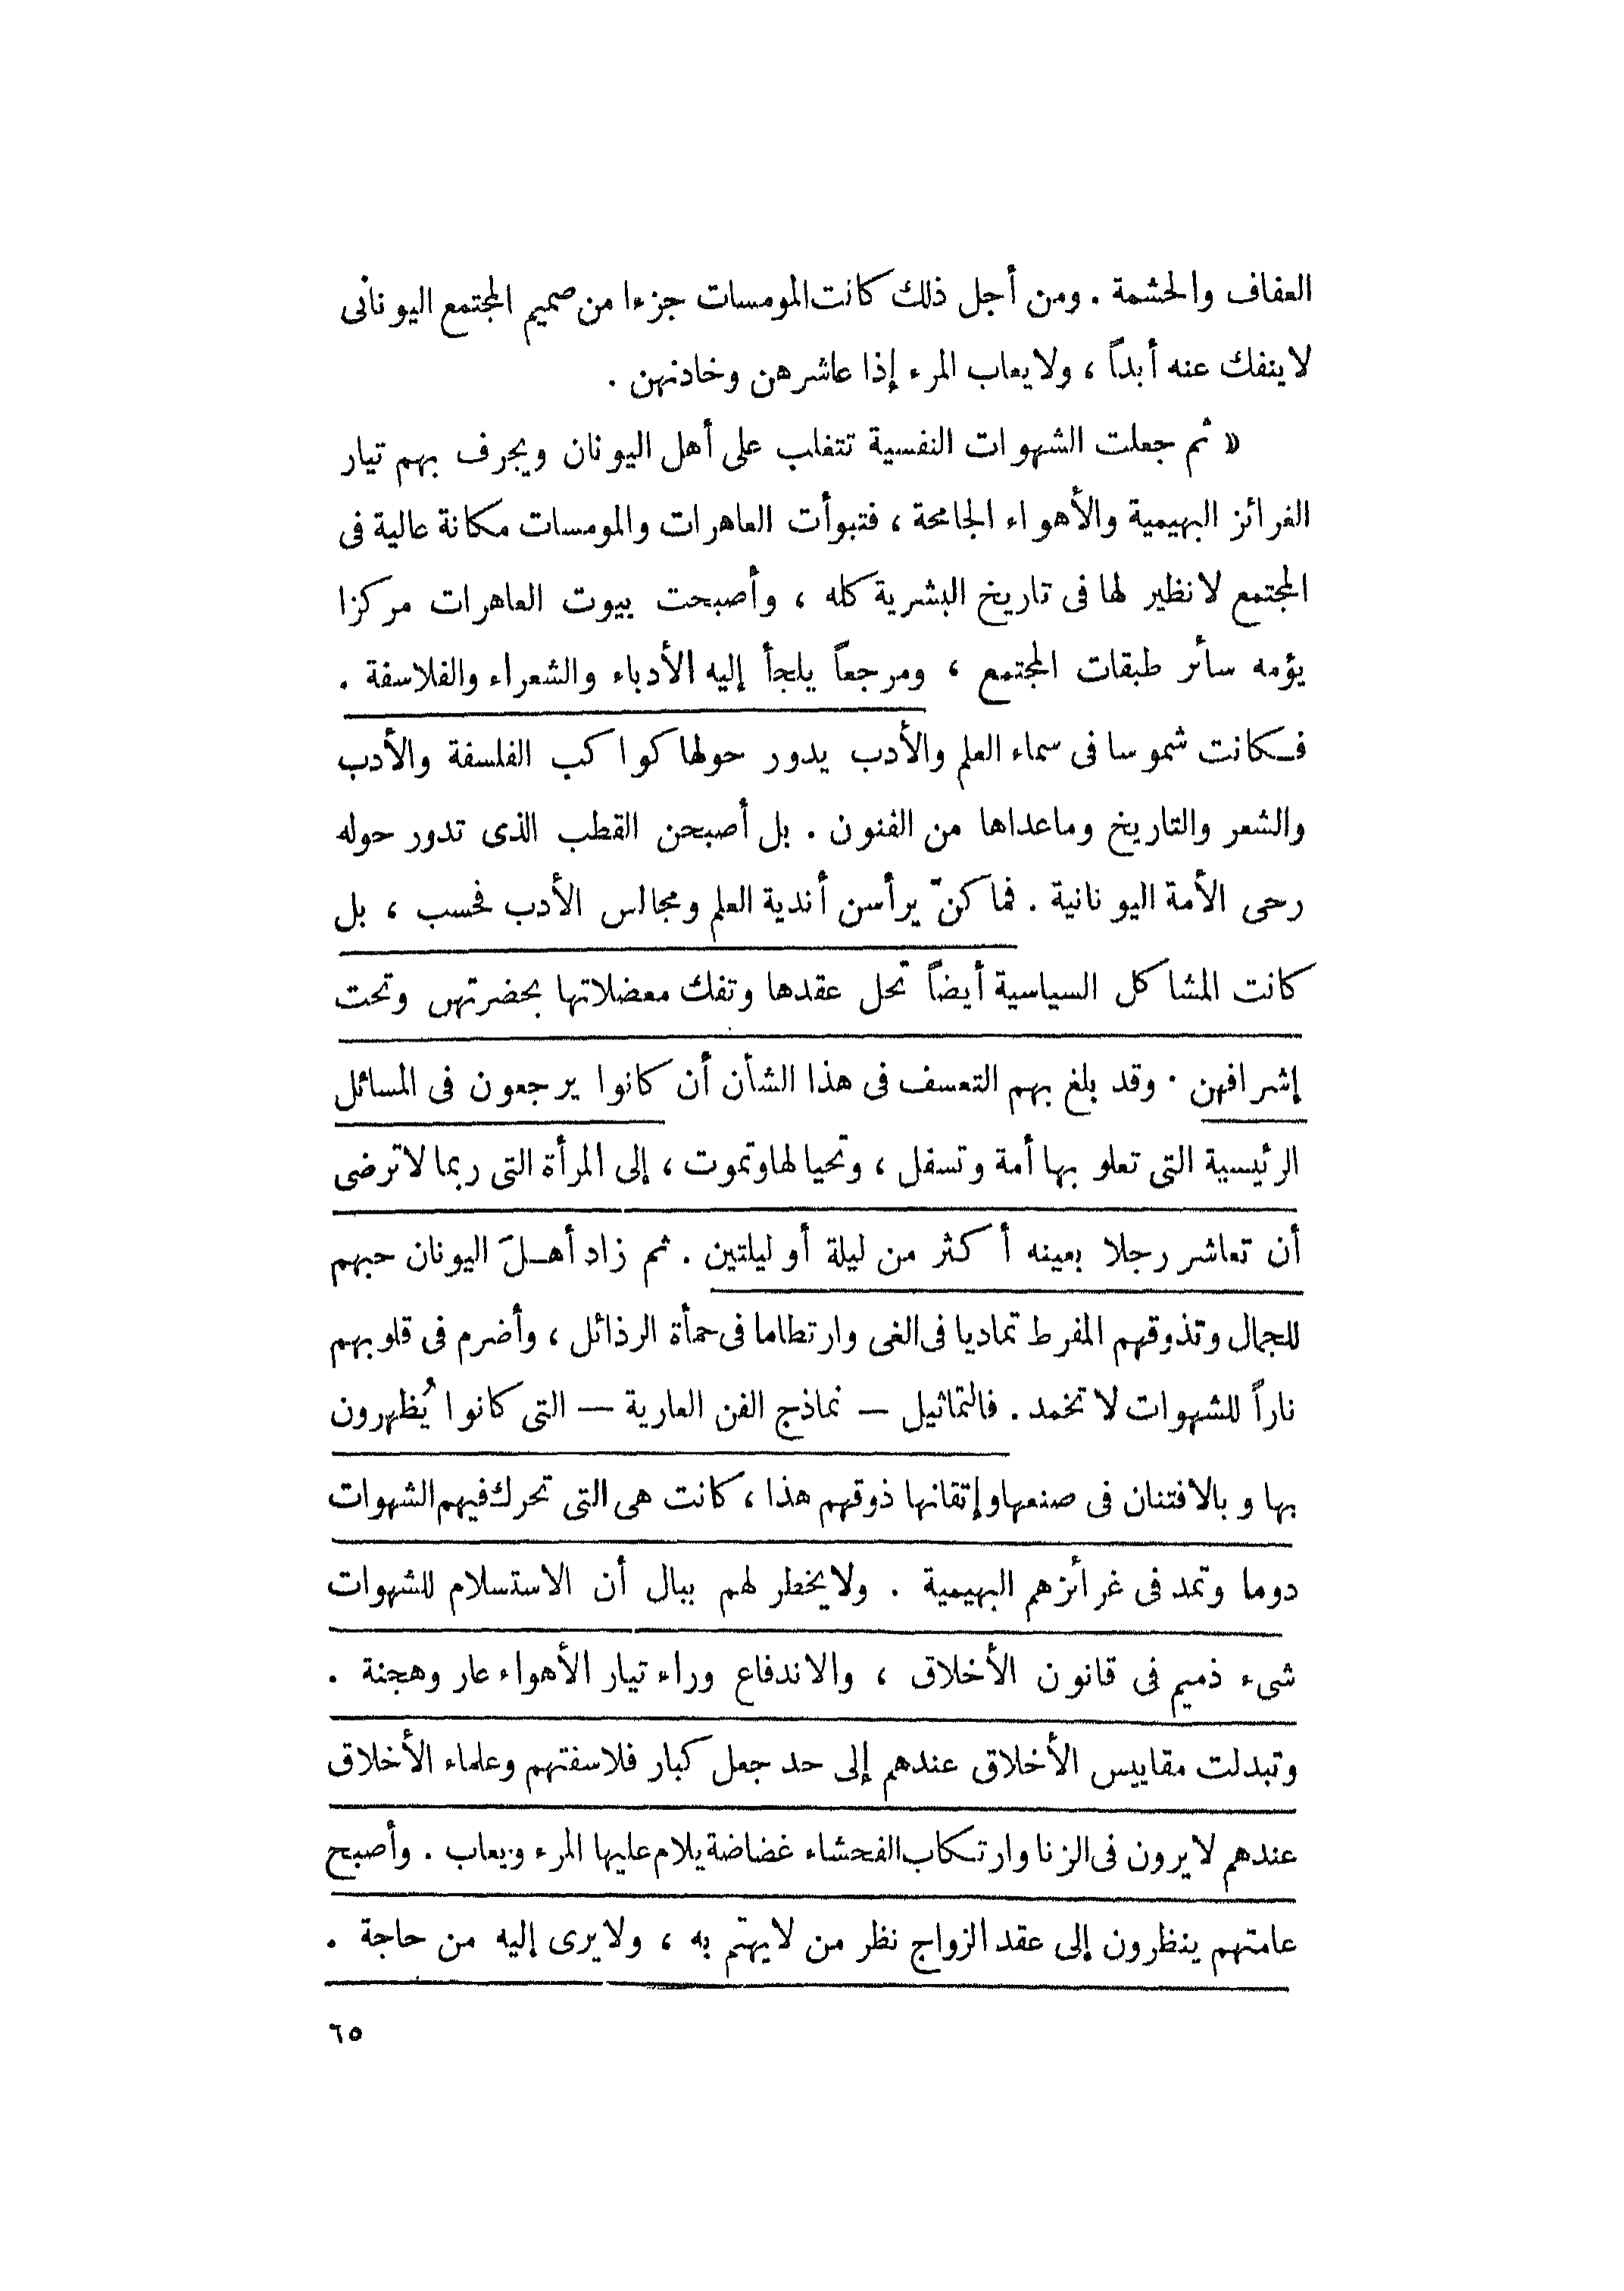 العفاف والحشمة . ومن أجل ذلك كانت المومسات جزءا من صميم المجتمع اليونانى
لاينفك عنه أبداً ، ولايعاب المرء إذا عاشرهن وخادنهن .
« ثم جعلت الشهوات النفسية تتغلب على أهل اليونان ويجرف بهم تيار
الغرائز البهيمية والأهواء الجامحة ، فتبوأت العاهرات والمومسات مكانة عالية فى
المجتمع لانظير لها فى تاريخ البشرية كله ، وأصبحت بيوت العاهرات مركزا
يؤمه سائر طبقات المجتمع ، ومرجعاً يلجأ إليه الأدباء والشعراء والفلاسفة .
فكانت شموسا فى سماء العلم والأدب يدور حولها كواكب الفلسفة والأدب
والشعر والتاريخ وماعداها من الفنون . بل أصبحن القطب الذى تدور حوله
رحى الأمة اليونانية . فما كنّ يرأسن أندية العلم ومجالس الأدب فحسب ، بل
كانت المشاكل السياسية أيضاً تحل عقدها وتفك معضلاتها بحضرتهن وتحت
إشرافهن . وقد بلغ بهم التعسف فى هذا الشأن أن كانوا يرجعون فى المسائل
الرئيسية التى تعلو بها أمة وتسفل ، وتحيا لها وتموت ، إلى المرأة التى ربما لاترضى
أن تعاشر رجلا بعينه أكثر من ليلة أو ليلتين . ثم زاد أهلَ اليونان حبهم
للجمال وتذوقهم المفرط تماديا فى الغى وارتطاما فى حمأة الرذائل ، وأضرم فى قلوبهم
ناراً للشهوات لا تخمد . فالتماثيل — نماذج الفن العارية — التى كانوا يُظهرون
بها و بالافتنان فى صنعها وإتقانها ذوقهم هذا ، كانت هى التى تحرك فيهم الشهوات
دوما وتمد فى غرائزهم البهيمية . ولايخطر لهم ببال أن الاستسلام للشهوات
شىء ذميم فى قانون الأخلاق ، والاندفاع وراء تيار الأهواء عار وهجنة .
وتبدلت مقاييس الأخلاق عندهم إلى حد جعل كبار فلاسفتهم وعلماء الأخلاق
عندهم لايرون فى الزنا وارتكاب الفحشاء غضاضة يلام عليها المرء ويعاب . وأصبح
عامتهم ينظرون إلى عقد الزواج نظر من لايهتم به ، ولايرى إليه من حاجة .
٦٥